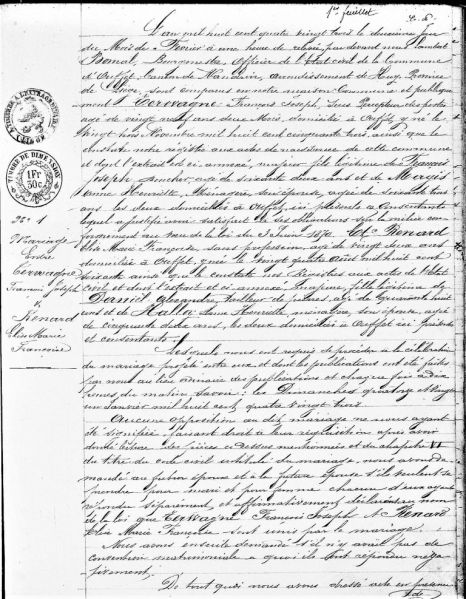 1er juillet
L'an mil huit cent quatre vingt trois le deuxième jour
du Mois de Février à une heure de relevée, par devant nous Lambert
Bourgmestre Officier de l'état civil de la Commune
d'Ouffet, Canton de Nandrin, arrondissement de Huy, Province
de Liège, sont comparus en notre maison Commune et publique
ment Terwagne François Joseph, Sous Percepteur des postes
agé de vingt neuf ans deux Mois, domicilié à Ouffet, y né le
vingt Novembre mil huit cent cinquante trois, ainsi que le
constate notre registre aux actes de naissance de cette commune
et dont l'extrait est ci annexé, majeur fils légitime de François
Joseph, agé de soixante deux ans et de
anne Henriette, Ménagère son épouse, agée de soixante
ans, les deux domiciliés à Ouffet, ici présents et Consentants
lequel a justifié avoir satisfait à ses obligations sur la milice con
formément au vœu de la loi du 3 Juin 1870. Et Renard
Elise Marie Françoise, sans profession, agée de vingt deux ans
domiciliée à Ouffet, y née le vingt quatre août mil huit cent
soixante ainsi que le constate nos Registres aux actes de l'état
civil et dont l'extrait est ci annexé, majeure, fille légitime de
Alexandre, tailleur de pierres, agé de quarante huit
ans et de Anne Henriette, ménagère, son épouse, agée
de cinquante deux ans, les deux domiciliés à Ouffet ici présents
et consentants.
Lesquels nous ont requis de procéder à la célébration
du mariage projeté entre eux et dont les publications ont été faites
par nous au lieu ordinaire des publications et chaque fois à dix
heures du matin savoir: les Dimanches quatorze et vingt
un Janvier mil huit cent quatre vingt trois.
Aucune opposition au dit mariage ne nous ayant
été signifiée, faisant droit à leur réquisition après avoir
donné lecture des pièces ci dessus mentionnées et du chapitre VI
du titre du code civil intitulé du mariage, nous avons de
mandé au futur époux et à la future épouse s'ils veulent se
prendre pour mari et pour femme, chacun d'eux ayant
répondu séparément et affirmativement, déclarons au nom
de la loi que Terwagne, François Joseph, et Renard
Elise Marie Françoise sont unis par le mariage.
Nous avons ensuite demandé s'il n'y avait pas de
convention matrimoniale, à quoi ils ont répondu néga
tivement.
De tout quoi nous avons dressé acte en présence
de
TIMBRE DE DIMENSION
1 Fr
30 c
No 1
Mariage
Entre
Terwagne
François Joseph
&
Renard
Elise Marie
Françoise